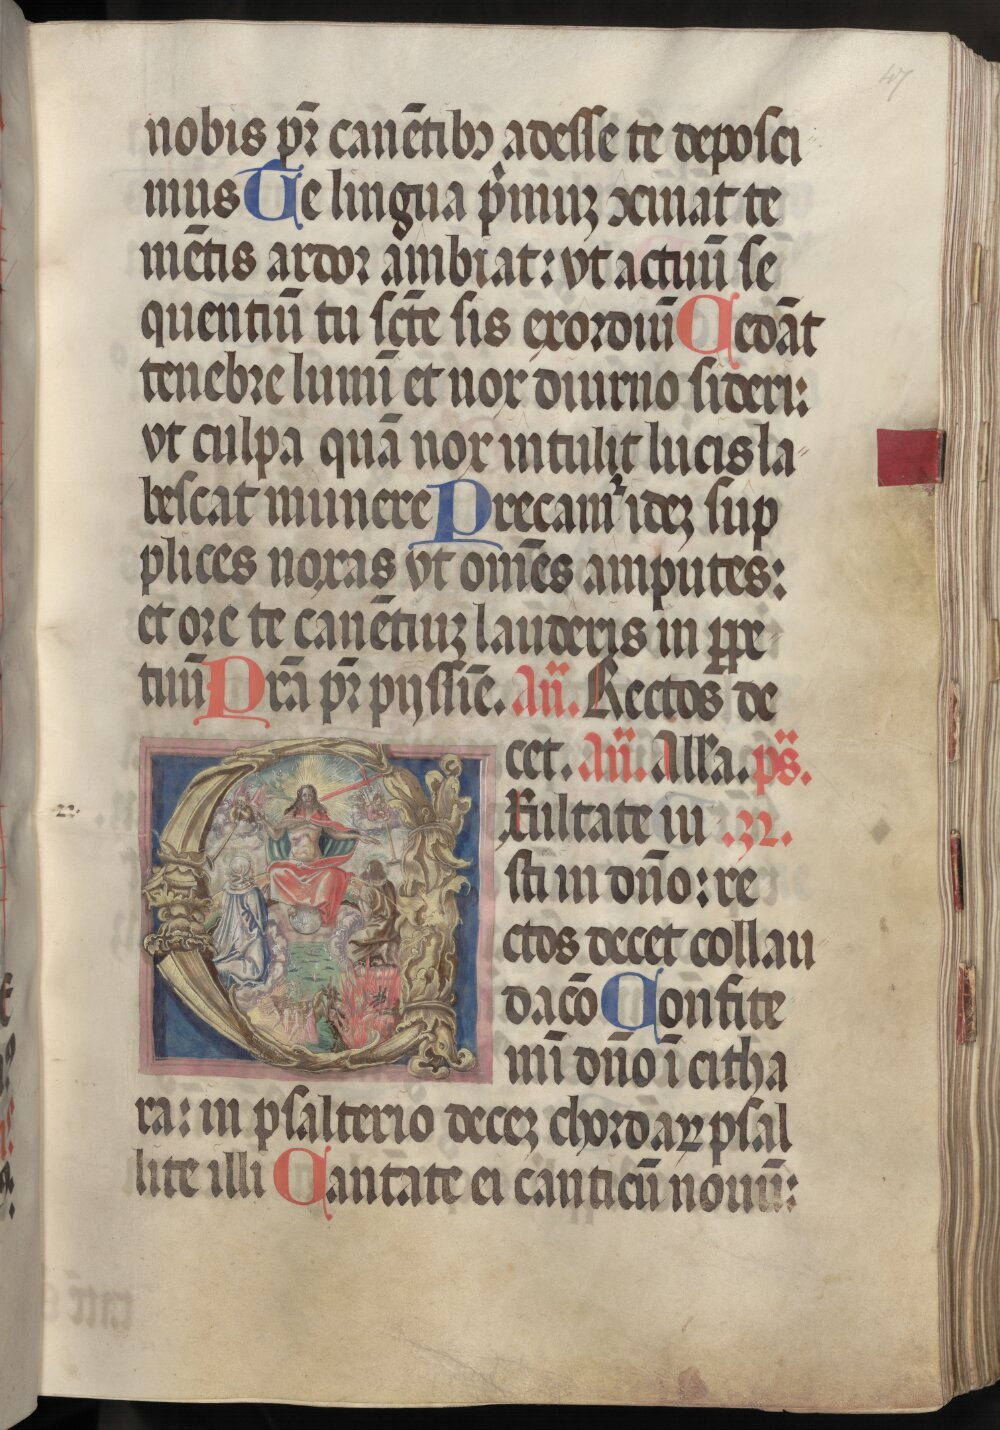 47
nobis pr̄ canētibꝰ adesse te deposci
mus Te lingua p̄muꝫ ꝯcinat te
mētis ardor ambiat: vt actuū se
quentiū tu sct̄e sis exordiū Cedāt
tenebre lumī et nox diurno sideri:
vt culpa quā nox intulit lucis la
bescat munere Precam̄ᷣ ideꝫ sup
plices noxas vt om̄es amputes:
et ore te canētiuꝫ lauderis in ꝑpe
tuū Prā pr̄ pijssīe. An̄. Rectos de
cet. An̄. Alla. ps̄.
Exultate iu .32.
sti in dn̄o: re
22.
ctos decet collau
dacō Confite
mī dn̄o ī citha
ra: in psalterio deceꝫ chordaꝝ psal
lite illi Cantate ei canticū nouū: